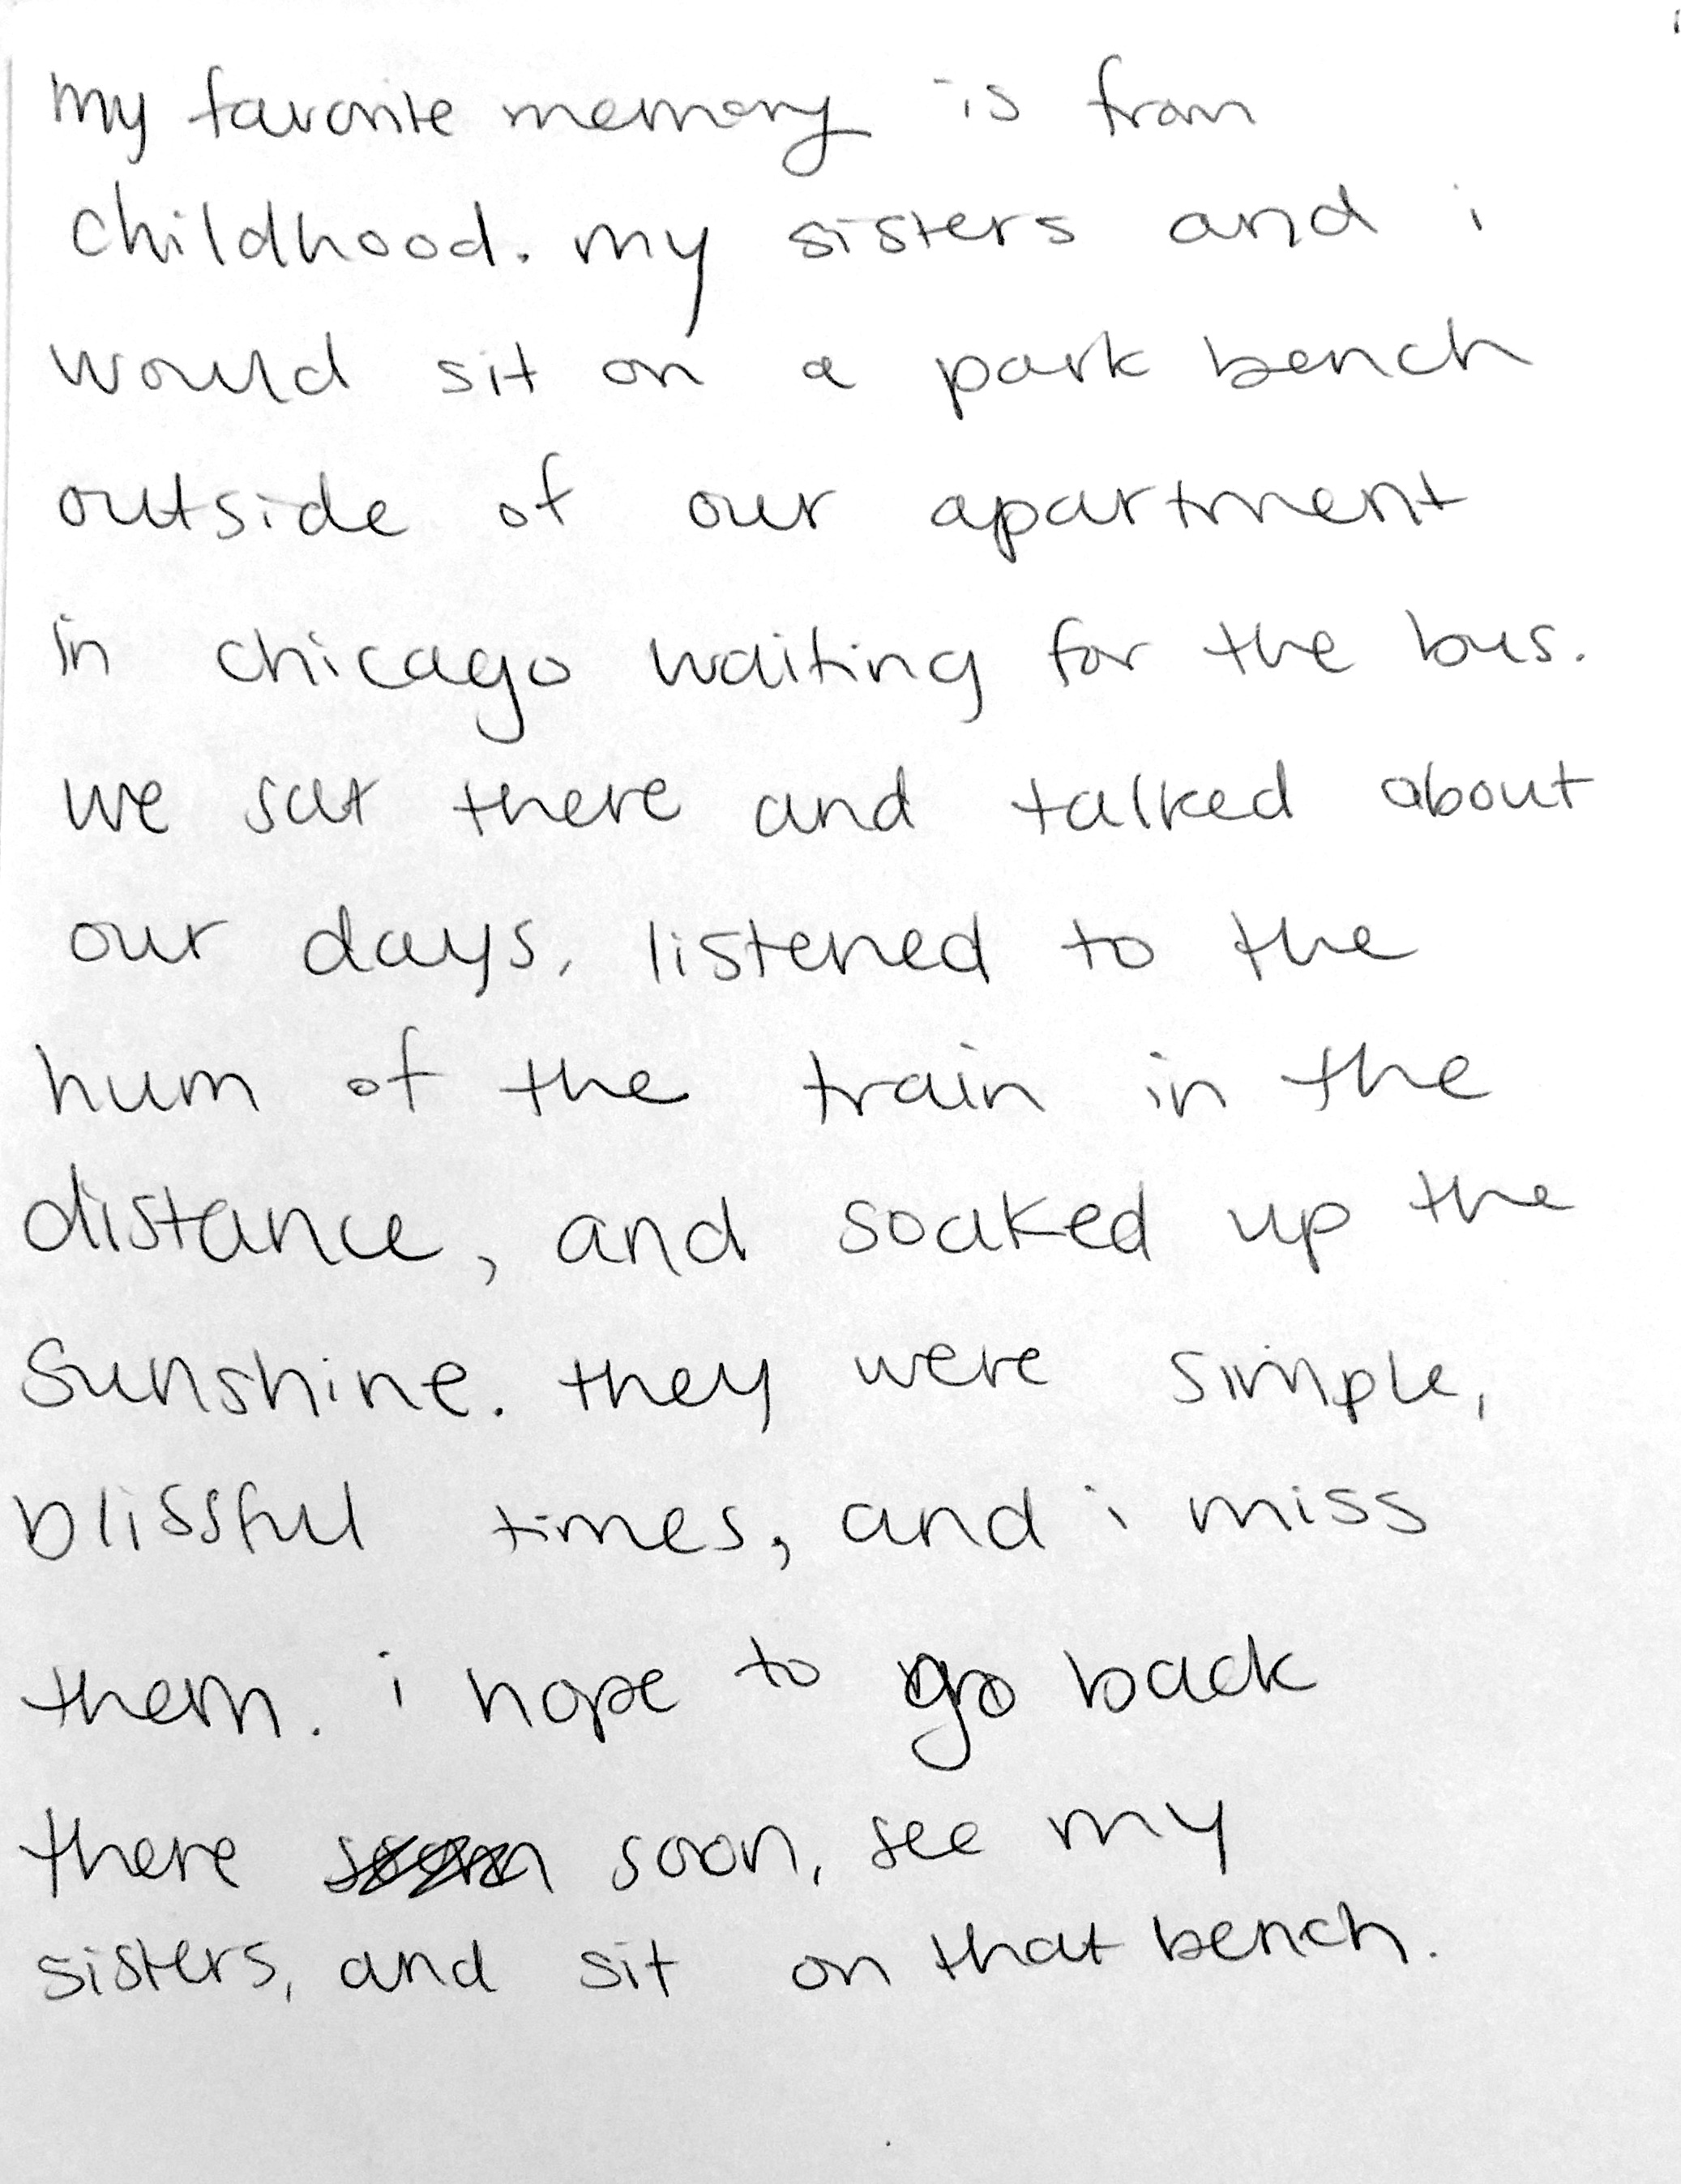 my favorite memory is from
childhood. my sisters and i
would sit on a park bench
outside of our apartment
in chicago waiting for the bus.
we sat there and talked about
our days, listened to the
hum of the train in the
distance, and soaked up the
sunshine. they were simple,
blissful times, and i miss
them. i hope to go back
there soon, see my
sisters, and sit on that bench.